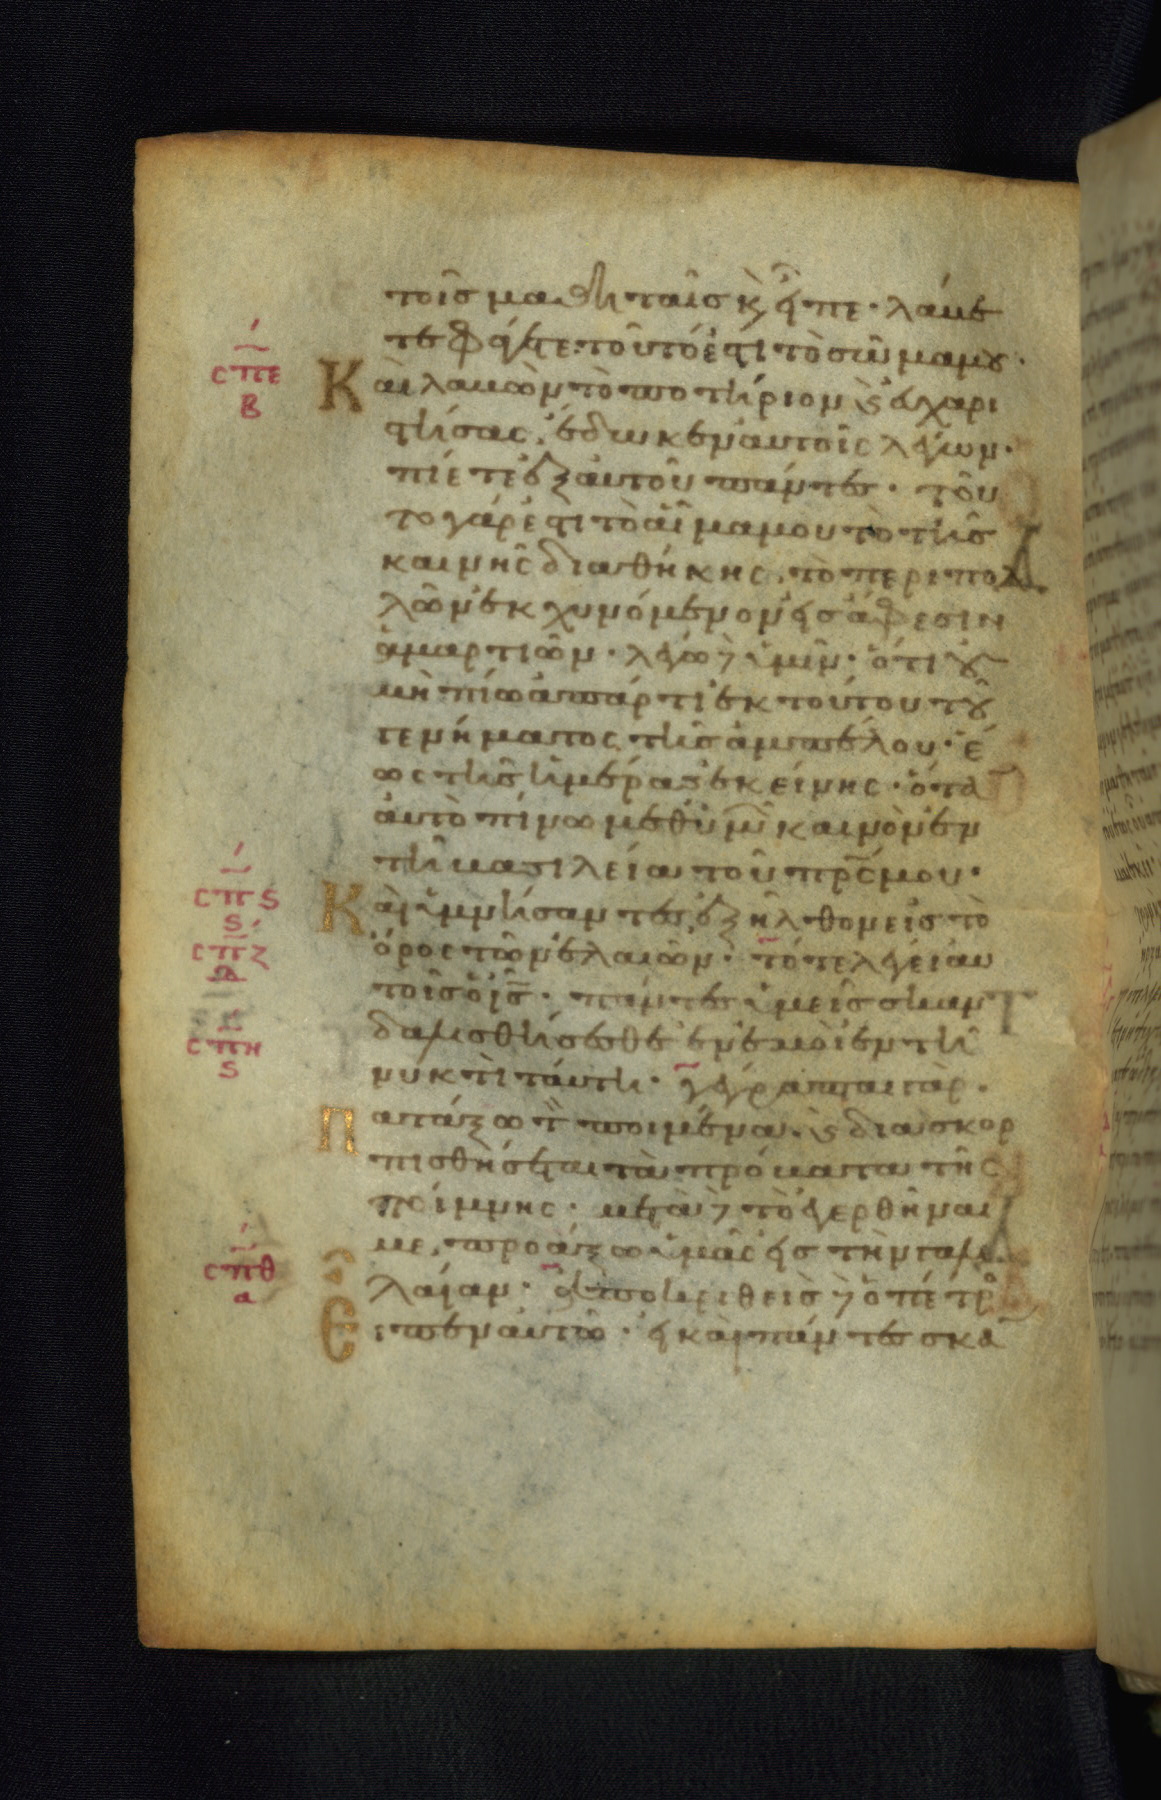 τοῖς μαθηταῖς κ(αὶ) εἶπε· λάβε
τε φάγετε· τοῦτό ἐστι τὸ σῶμα μου·
σπε
β
Καὶ λαβὼν τὸ ποτήριον κ(αὶ) εὐχαρι
στήσας, ἔδωκεν αὐτοῖς λέγων·
πίετε ἐξ αὐτοῦ πάντες· τοῦ
το γάρ ἐστι τὸ αἷμα μου τὸ τῆς
καινῆς διαθήκης, τὸ περὶ πολ
λῶν ἐκχυνόμενον εἰς ἄφεσιν
ἁμαρτιῶν· λέγω δὲ ὑμῖν· ὅτι οὐ
μὴ πίω ἀπάρτι ἐκ τούτου τοῦ
γενήματος τῆς ἀμπέλου· ἕ
ως τῆς ἡμέρας ἐκείνης· ὅτα(ν)
αὐτὸ πίνω μεθ' ὑμῶ(ν) καινὸν ἐν
τῆ βασιλεία τοῦ πρς μου·
σπς
ς
Καὶ ὑμνήσαντες, ἐξῆλθον εἰς τὸ
σπζ
δ
ὄρος τῶν ἐλαιῶν· τότε λέγει αὐ
τοῖς ὁ ις· πάντες ὑμεῖς σκαν
σπη
ς
δαλισθήσεσθε ἐν ἐμοὶ ἐν τῆ
νυκτὶ ταύτη· γέγραπται γὰρ·
Πατάξω τ(ὸν) ποιμένα, κ(αὶ) διασκορ
πισθήσεται τὰ πρόβατα τῆς
ποίμνης· μετὰ δὲ τὸ ἐγερθῆναι
με, προάξω ὑμᾶς εἰς τὴν γαλι
σπθ
α
λαίαν· ἀποκριθεὶς δὲ ὁ πέτρο(ς)
Εἶπεν αὐτῶ· εἰ καὶ πάντες σκα(ν)